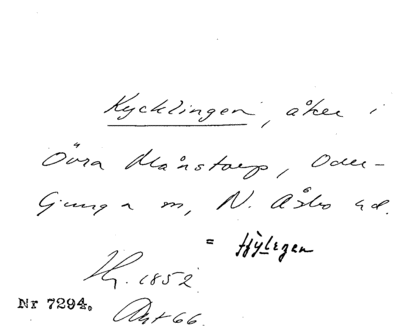 Kycklingen, åker i
Övra Månstorp, Oder-
ljunga sn, N. Åsbo hd.
= Hylegen
Hy. 1852.
Nr 7294. Akt 66.